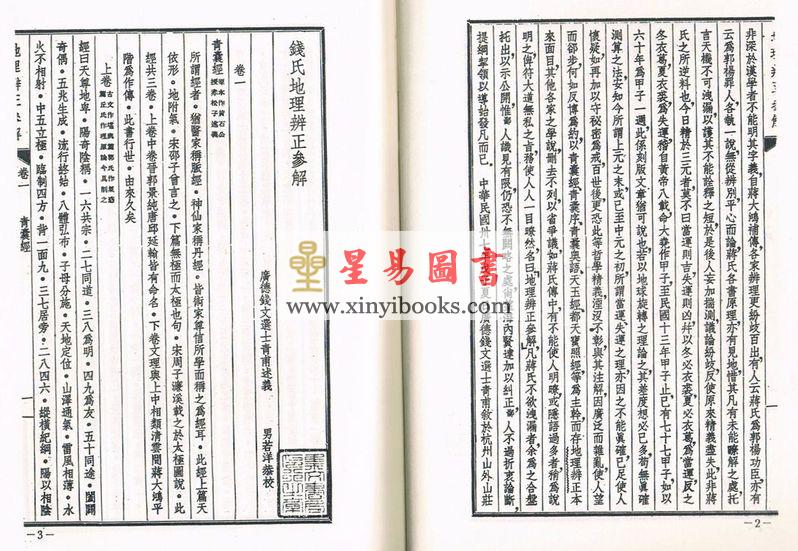 非深於漢學者不能明其字義自蔣大鴻補傳各家辨理更紛歧百出有人云蔣氏為郭楊功臣亦有
云為郭楊罪人各執一說無從辨別平心而論蔣氏各書原理亦有見地惜其凡有未能瞭解之處托
言天機不可洩漏以護其不能詮釋之短於是後人妄加揣測議論紛歧反使原來精義盡失此非蔣
氏之所逆料也今日精於三元者莫不曰當運則吉失運則凶并以冬必衣裘夏必衣葛為當運反之
冬衣葛夏衣裘為失運稽自黃帝八載命大堯作甲子至民國十三年甲子止已有七十七甲子如以
六十年為甲子一週此係刻版文章猶可說也若以地球旋轉之理論之其差度想必已多苟無眞確
測算之法安知今所謂上元之末或已至中元之初所謂當運失運之理亦因之不能眞確已足使人
懷疑如再加以守秘密為戒百世後更恐此等哲學精義湮沒不彰與其注解因廣泛而雜亂使人望
而卻步何如反博為約以青囊經青囊序青囊奧語天玉經都天寶照經等為主幹而存地理辨正本
來面目其他各家之學說刪去不列以省爭議如蔣氏傳中有不能使人明瞭或隱語過多者稍
明之俾符大道無私之言移使人人一目瞭然名曰地理辨正參解凡蔣氏不欲洩漏者余為之合盤
托出以示公開惟鄙人識見有限仍恐不無闕略之處尚內賢達加以糾正鄙人不過折衷論斷
提綱挈領以導始發凡而已 中華民國卅七年夏廣德錢文選士青甫敘於杭州山外山莊
—2—
錢氏地理辨正參解
廣德錢文選士青甫述義
男若洋恭校
卷一
青囊經 原本作黃石公授赤松子述義
所謂經者。猶醫家稱脈經。神仙家稱丹經。皆術家尊信所學而稱之為經耳。此經上篇天
依形。地附氣。宋邵子曾言之。下篇無極而太極也句。宋周子濂溪載之於太極圖說。此
經共三卷。上卷中卷晉郭景純唐邱延翰皆有命名。下卷文理與上中相類清雲間蔣大鴻平
階為作傳。此書行世。由來久矣
上卷
經曰天尊地卑。陽奇陰耦。一六共宗。二七同道。三八為朋。四九為友。五十同途。闔闢
奇偶。五兆生成。流行終始。八體弘布。子母分施。天地定位。山澤通氣。雷風相薄。水
火不相射。中五立極。臨制四方。背一面九。三七居旁。二八四六。縱橫紀綱。陽以相陰
卷一 青囊經
—3—
星易圖書
www.xinyibooks.com